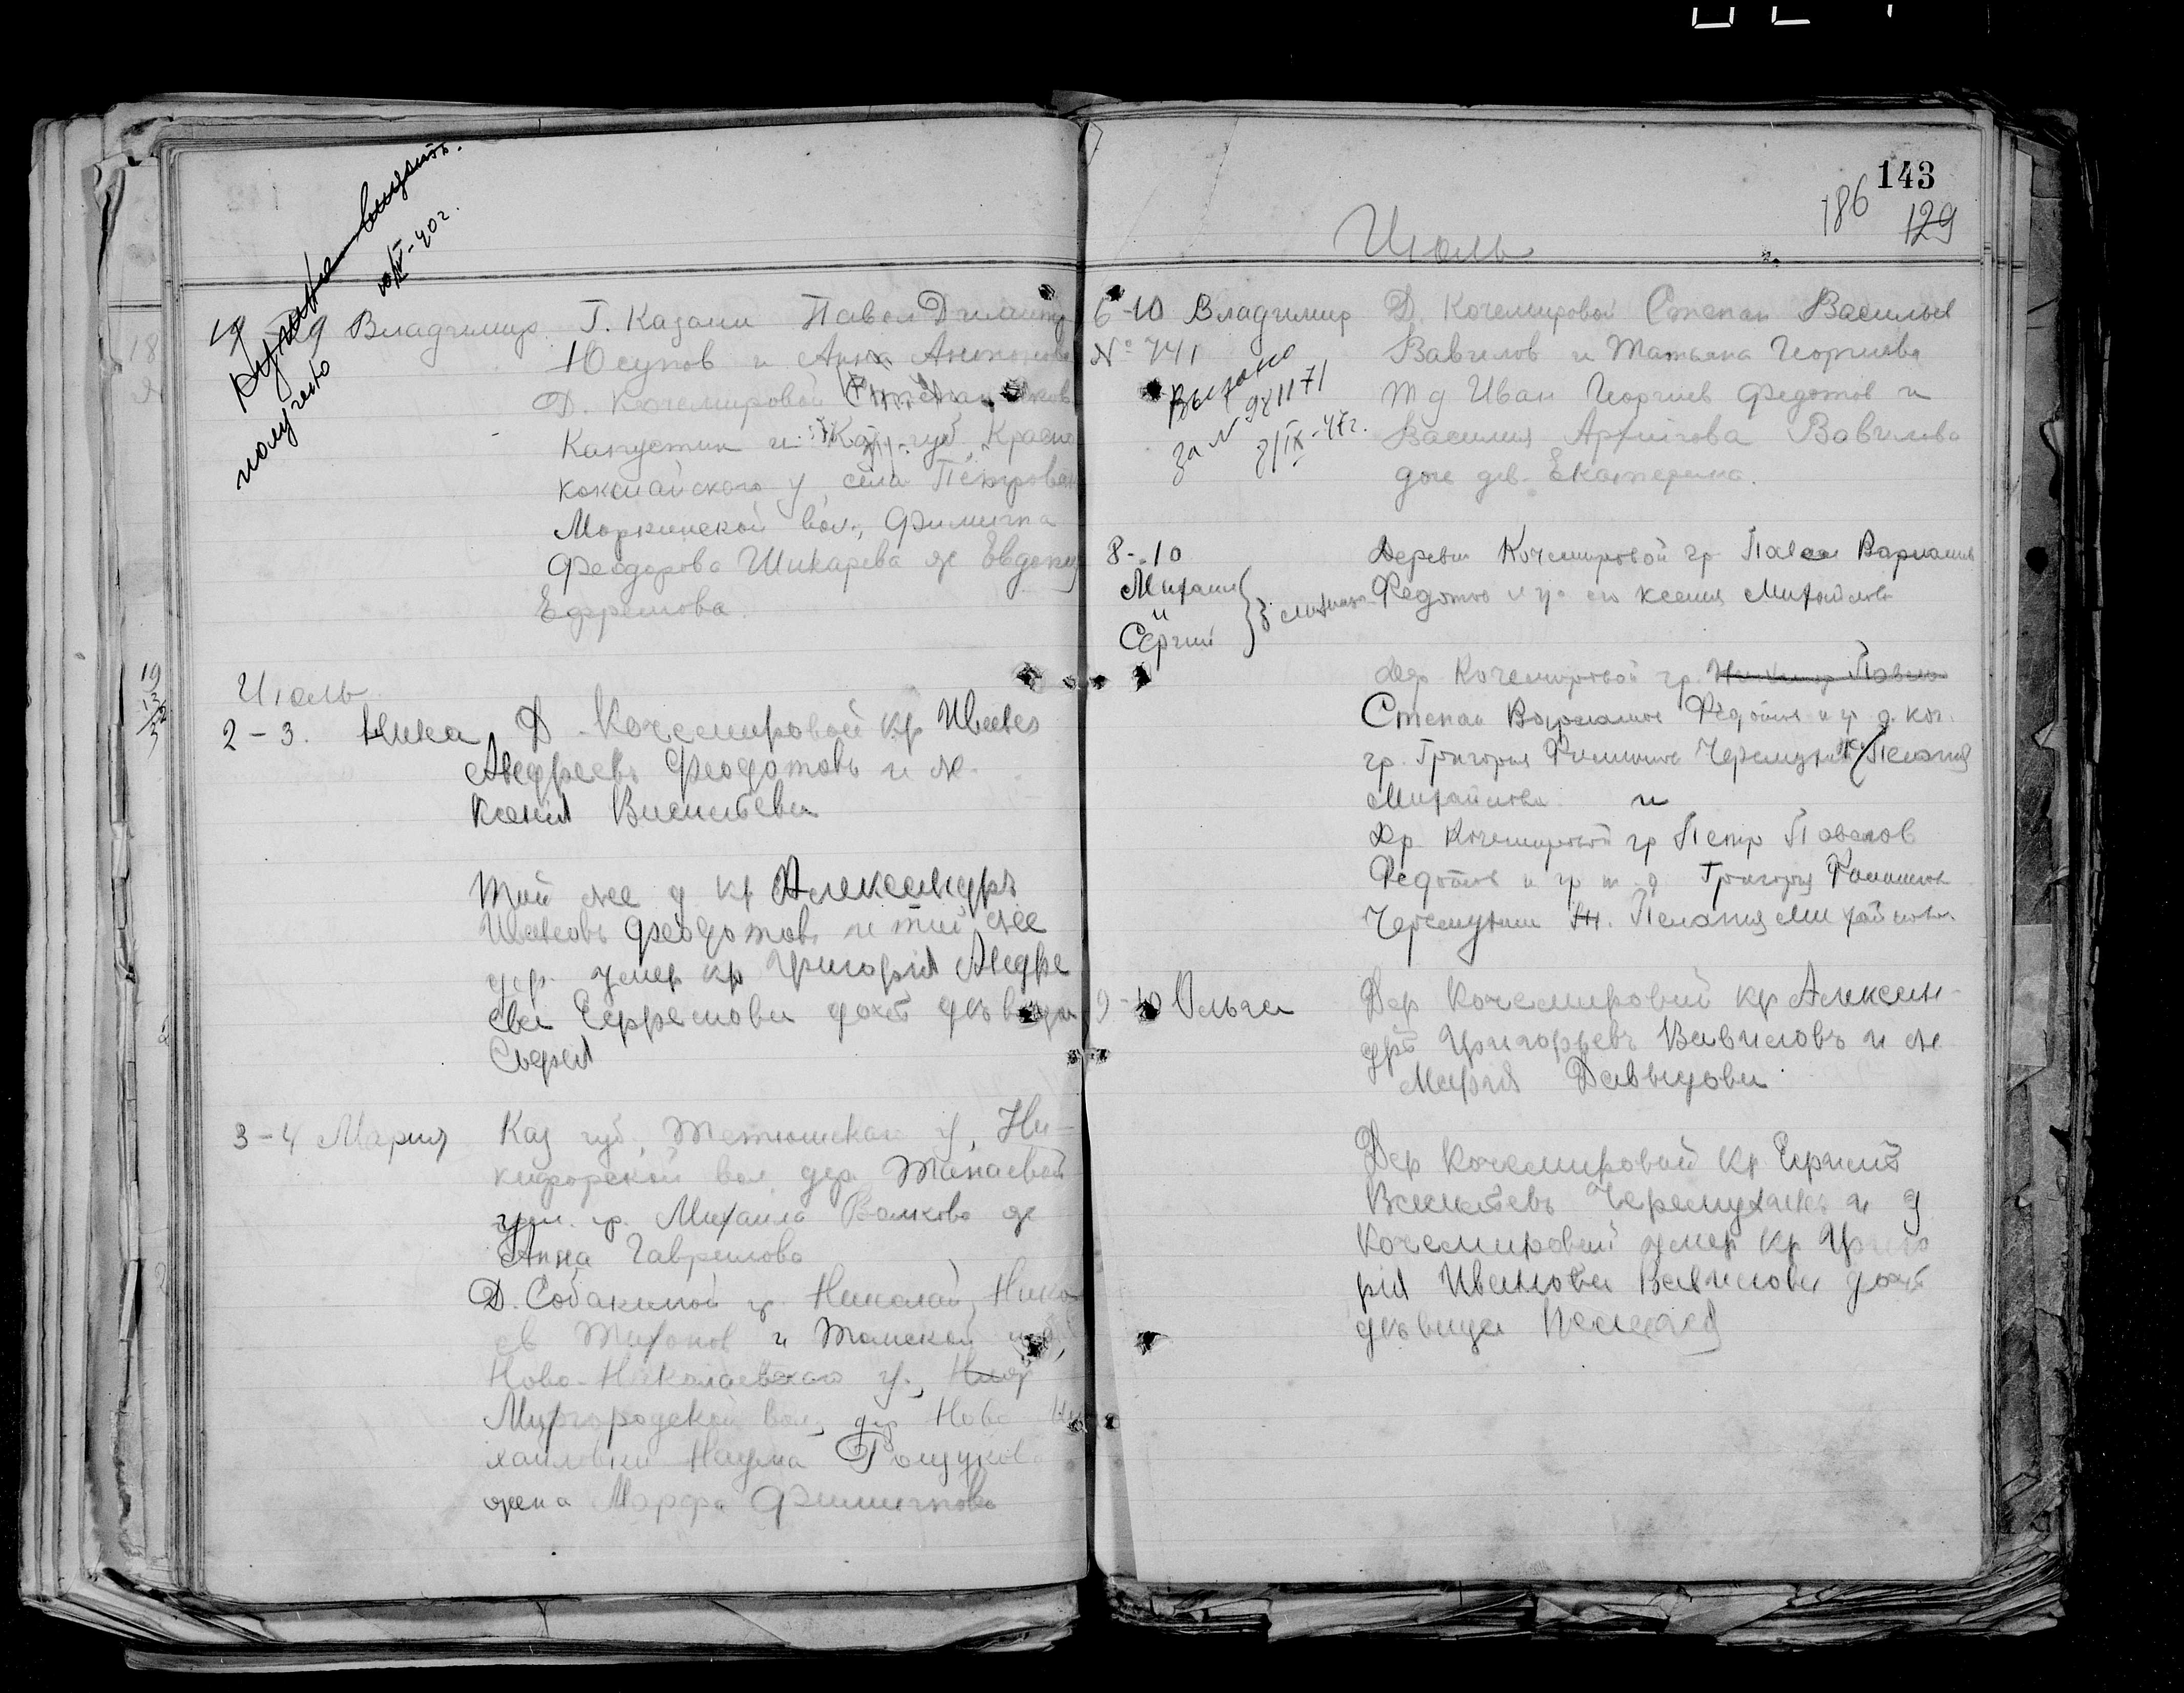 получено
10/IV-40г.
29 Владимир Г. Казани Павел Димитр
Юсупов и Анна Антонова
Д. Кочемировой Степан
Капустин и Каз. губ., Красно
кокшайского у, села Петровск
Моркинской вол., Филиппа
Феодорова Шихарева ж Евдокия
Ефремова.
Июль
2-3. Нина Д. Кочемировой кр Иванъ
Андреевъ Феодотовъ и ж.
Ксенія Васильева
Той же д кр Александръ
Ивановъ Феодотовъ и той же
дер. умер кр Григорія Андре
ева Ефремова дочь дѣвица
Софія
3-4 Мария Каз губ., Тетюшскаго у, Ни-
кифорской вол дер. Танаевой
гр. Михаила Волкова ж
Анна Гаврилова
Д. Собакиной гр. Николай Нико
ев Тихонов и Томской губ,
Ново-Николаевского у.,
Миргородской вол, дер Ново Ми
хайловки Наума
жена Марфа Филиппова
143
186
129
Июль
6-10 Владимир Д. Кочемировой Степан Васильев
№ 741 Вавилов и Татьяна Георгиева
Выдано
за № 981171
3/IX-47г.
т д Иван Георгиев Федотов и
Василия Архипова Вавилова
доч дев. Екатерина.
8-10 Деревни Кочемировой гр Павел Варламов
Михаил
и
Сергий
Федотов и ж его Ксения Михайлова
дер Кочемировой гр.
Степан Варламов Федотов и гр д. Коч.
гр. Григория Филиппова Черемухин ж Пелагия
Михайлова и
Др. Кочемировой гр Петр Павлов
Федотов и гр т. д Григория Филиппов
Черемухин ж. Пелагия Михайлова
9-10 Ольга Дер Кочемировой кр Алексан-
дръ Григорьевъ Вавиловъ и ж
Марія Давыдова
Дер Кочемировой кр Сергий
Васильевъ Черемухинъ и д
Кочемировой умер кр Григо
рія Иванова Вавилова дочь
дѣвица Пелагея